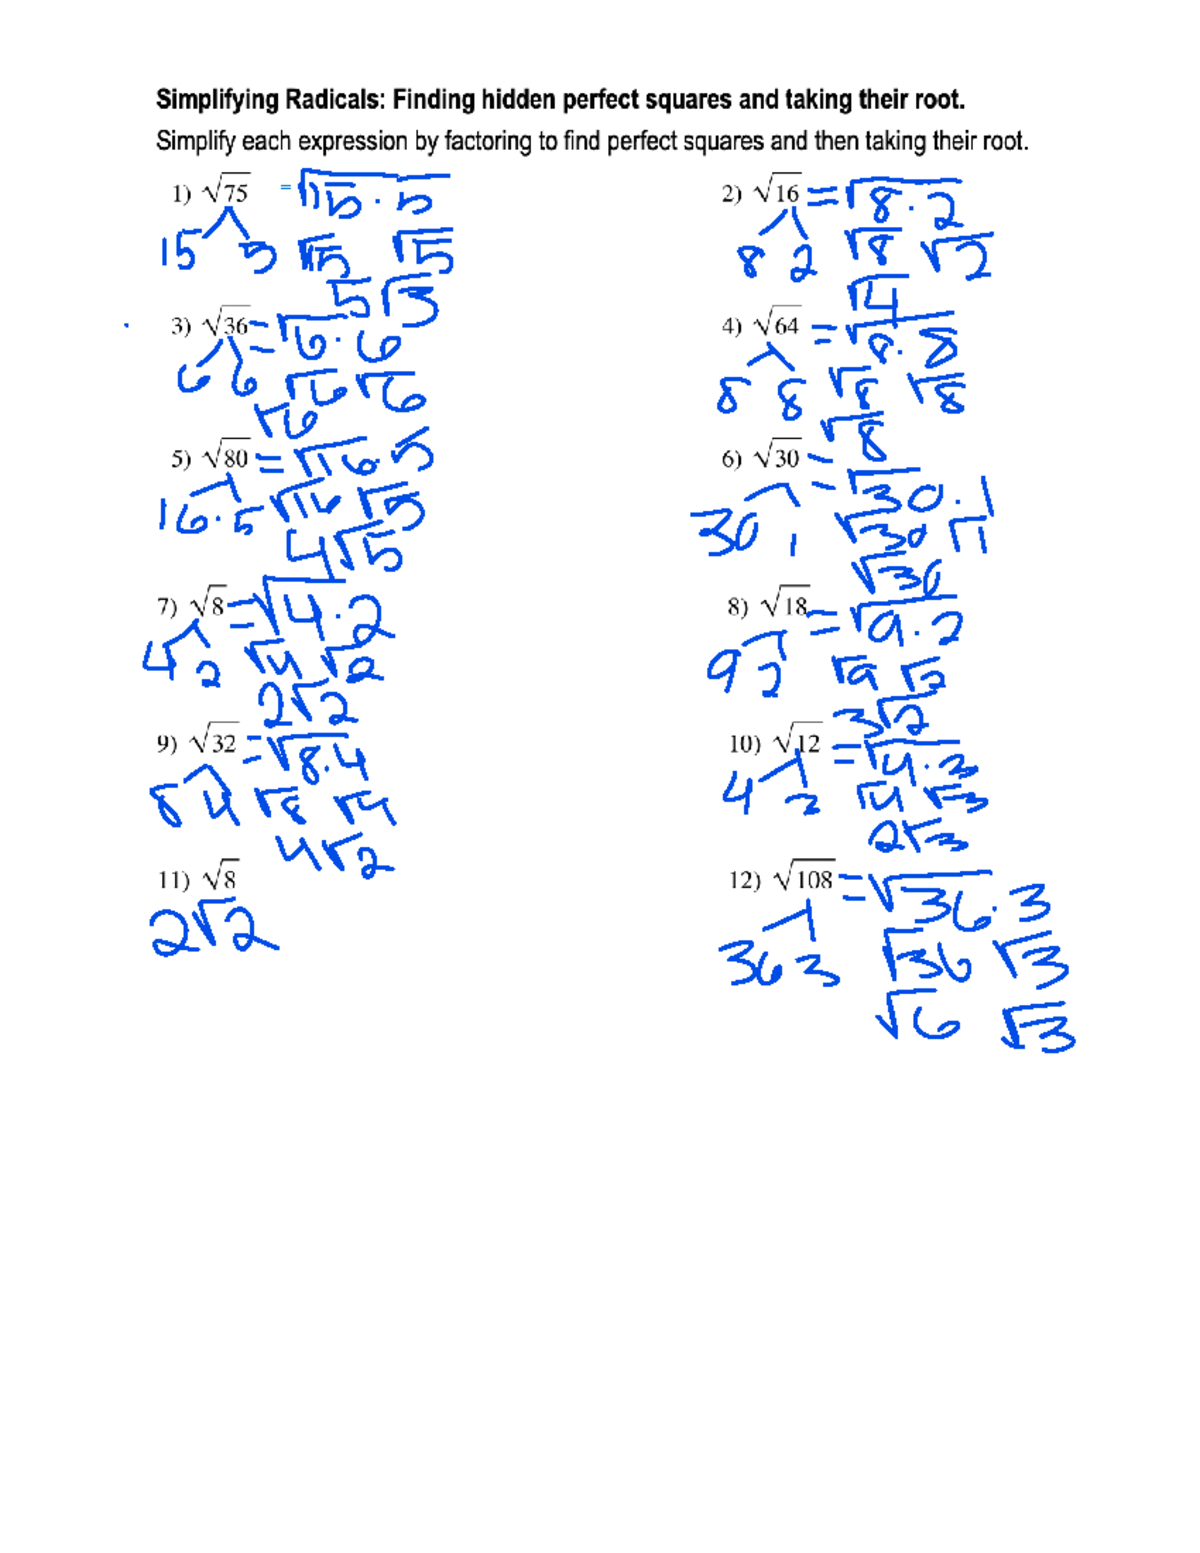 Simplifying Radicals: Finding hidden perfect squares and taking their root.
Simplify each expression by factoring to find perfect squares and then taking their root.
1) √75 = √15 · 5
15 5 √15 √5
5√3
2) √16 = √8 · 2
8 2 √8 √2
√4
3) √36 = √6 · 6
6 6 √6 √6
√6
4) √64 = √8 · 8
8 8 √8 √8
√8
5) √80 = √16 · 5
16 · 5 √16 √5
4√5
6) √30 = √30 · 1
30 1 √30 √1
√30
7) √8 = √4 · 2
4 2 √4 √2
2√2
8) √18 = √9 · 2
9 2 √9 √2
3√2
9) √32 = √8 · 4
8 4 √8 √4
4√2
10) √12 = √4 · 3
4 3 √4 √3
2√3
11) √8
2√2
12) √108 = √36 · 3
36 3 √36 √3
√6 √3